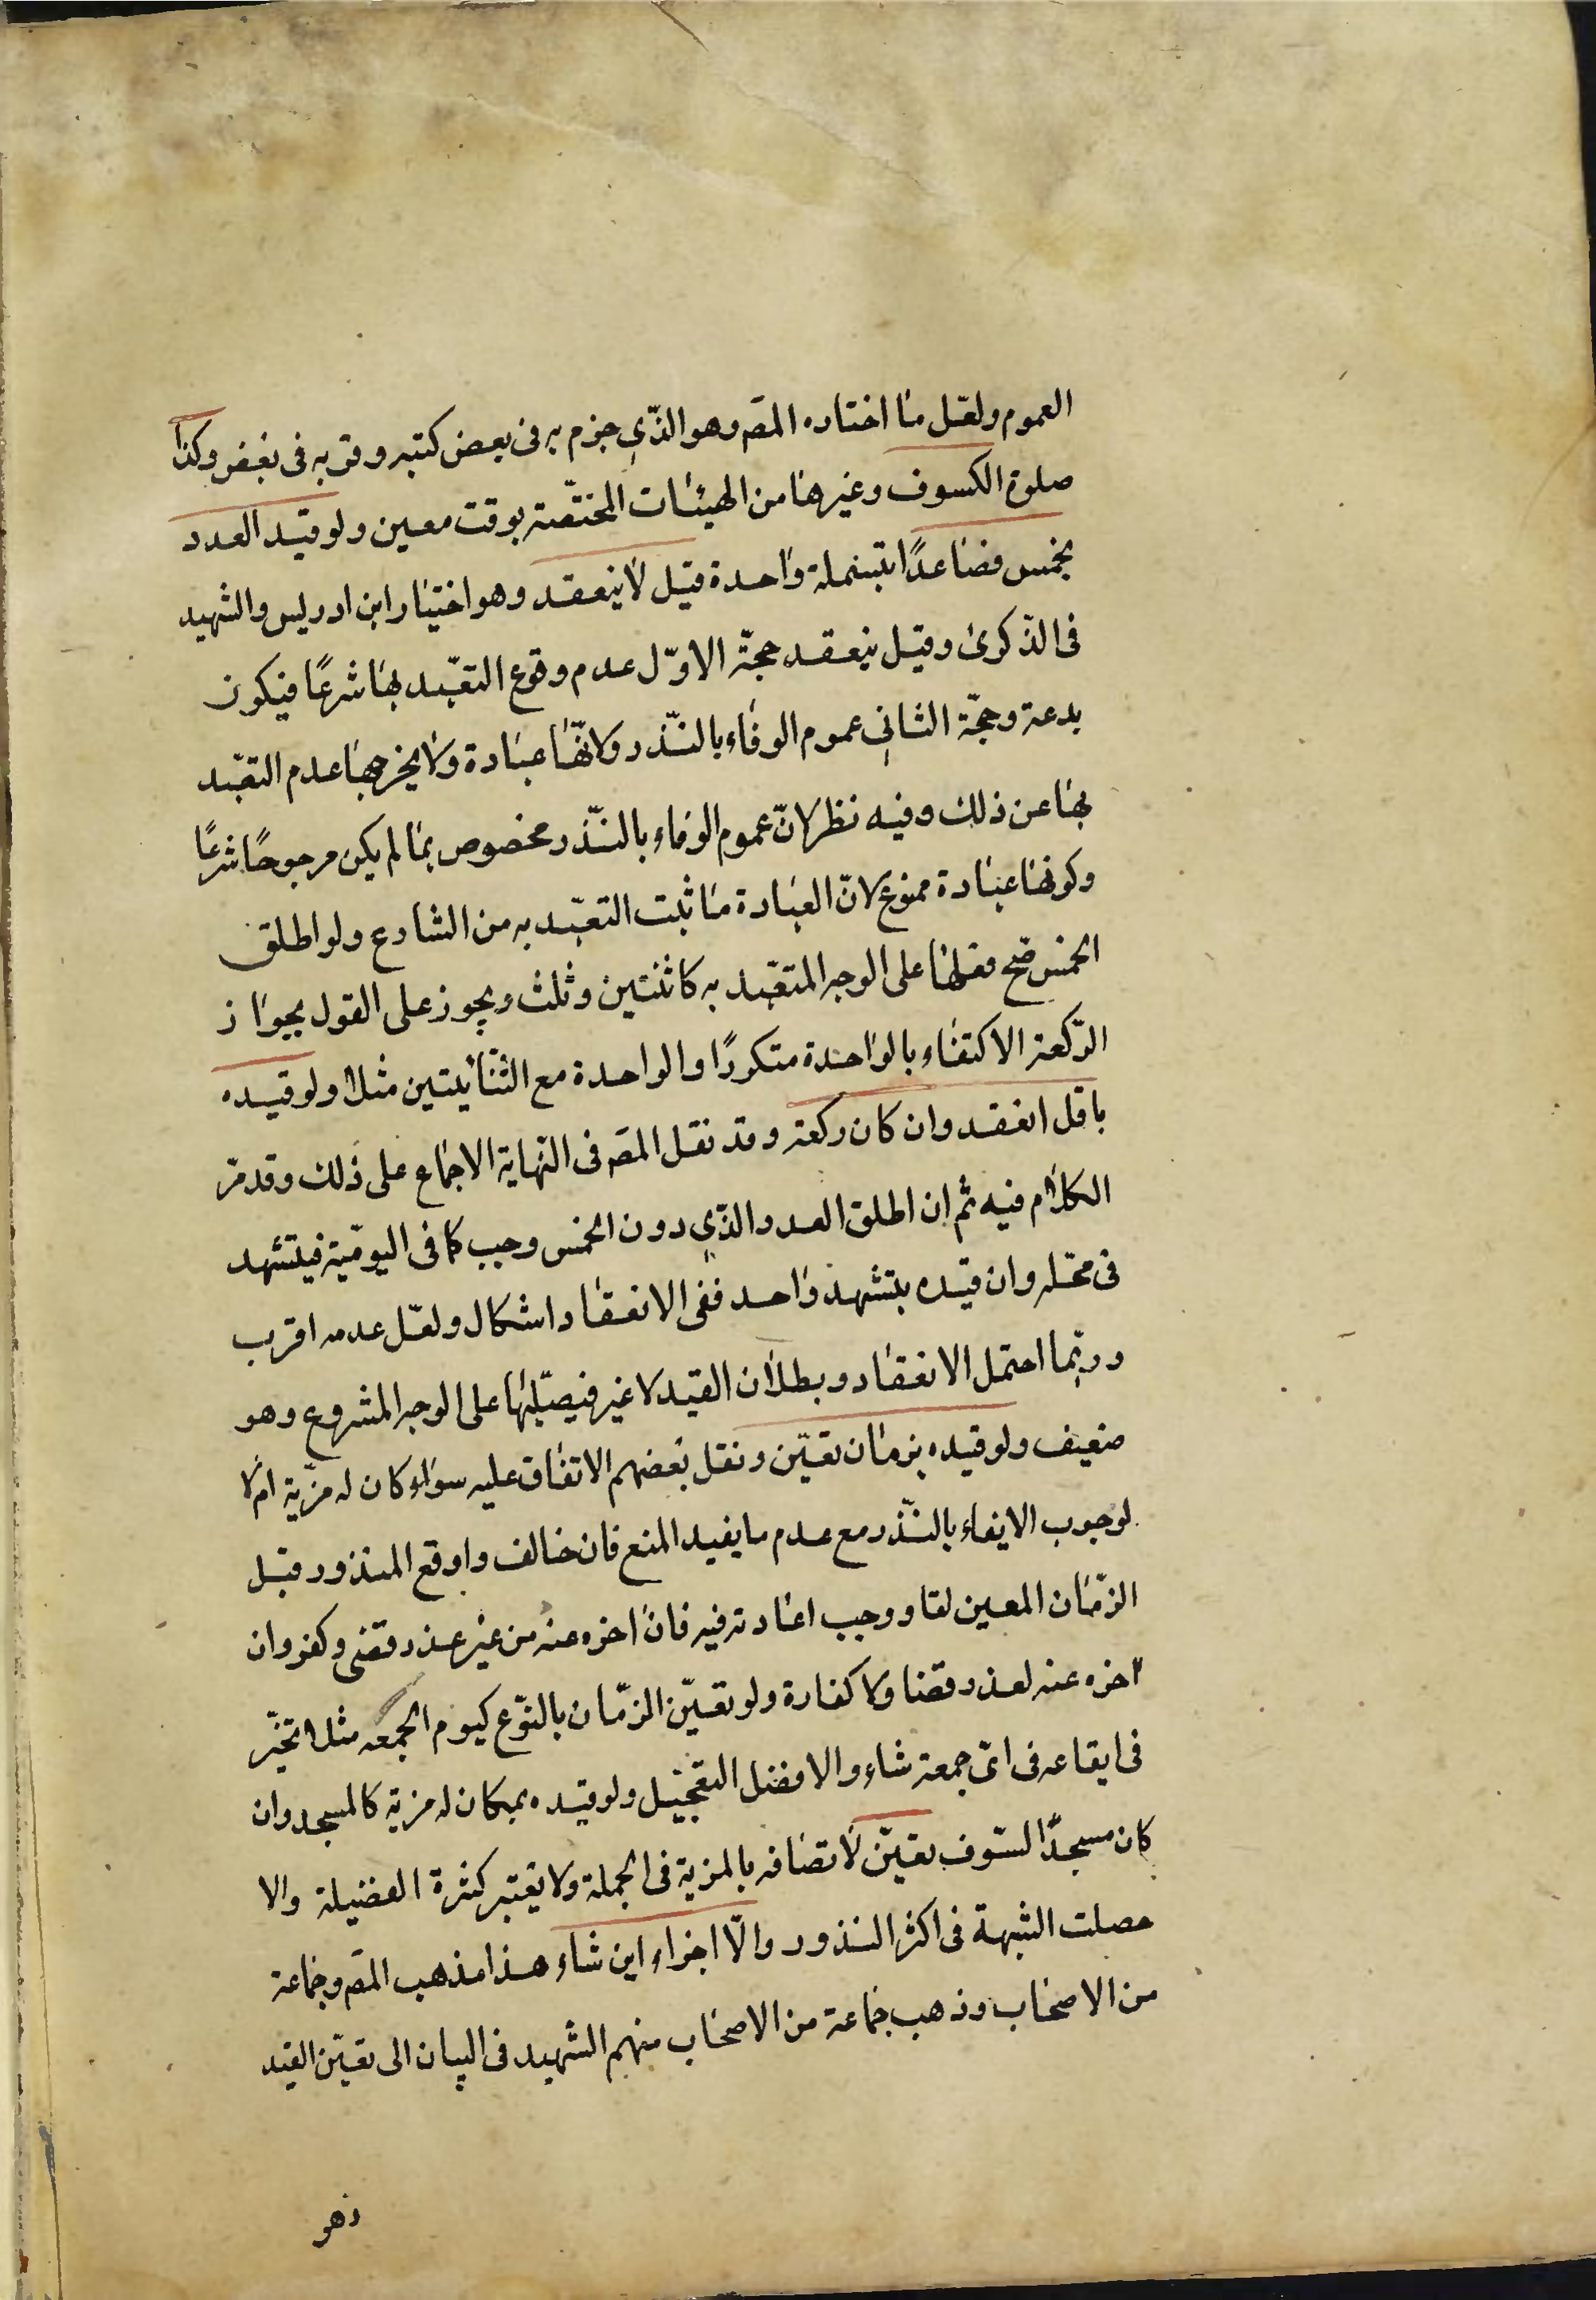 العموم ولعّل ما اختاره المصّ وهو الّذي جزم به فى بعض كتبه وقربه فى بعض وكذا
صلوة الكسوف وغيرها من الهيئات المختصّة بوقت معين ولو قيد العدد
بخمس فصاعدًا بتسليمة واحدة قيل لا ينعقد وهو اختيار ابن ادريس والشهيد
فى الذّكرى وقيل ينعقد حجّة الاوّل عدم وقوع التعبّد بها شرعًا فيكون
بدعة وحجّة الثاني عموم الوفاء بالنّذر ولانّها عبادة ولا يخرجها عدم التعبّد
بها عن ذلك وفيه نظر لانّ عموم الوفاء بالنّذر مخصوص بما لم يكن مرجوحًا شرعًا
وكونها عبادة ممنوع لانّ العبادة ما ثبت التعبّد به من الشارع ولو اطلق
الخمس صّح فعلها على الوجه المتعبّد به كاثنتين وثلث ويجوز على القول بجواز
الرّكعة الاكتفاء بالواحدة متكررًا والواحدة مع الثّنائيتين مثلا ولو قيده
باقل انعقد وان كان ركعة وقد نقل المصّ فى النّهاية الاجماع على ذلك وقد مرّ
الكلام فيه ثم ان اطلق العدد الّذي دون الخمس وجب كما فى اليوميّة فيتشهد
فى محّله وان قيّده بتشهد واحد ففى الانعقاد اشكال ولعّل عدمه اقرب
وربّما احتمل الانعقاد وبطلان القيد لا غير فيصلّيها على الوجه المشروع وهو
ضعيف ولو قيده بزمان تعيّن ونقل بعضهم الاتفاق عليه سواء كان له مزيّة ام لا
لوجوب الايفاء بالنّذر مع عدم ما يفيد المنع فان خالف واوقع المنذور قبل
الزّمان المعين لغا ووجب اعادته فيه فان اخره عنه من غير عذر قضى وكفر وان
اخره عنه لعذر قضا ولا كفارة ولو تعيّن الزّمان بالنّوع كيوم الجمعه مثلا تخيّر
فى ايقاعه فى اىّ جمعة شاء والافضل التعجيل ولو قيده بمكان له مزية كالمسجد وان
كان مسجدًا لسّوف تعيّن لاتصافه بالمزية فى الجملة ولا يعتبر كثرة الفضيلة والا
حصلت الشبهة فى اكثر النذور والّا اجزاء اين شاء هذا مذهب المصّ وجماعة
من الاصحاب وذهب جماعة من الاصحاب منهم الشهيد فى البيان الى تعيّن القيد
وهو